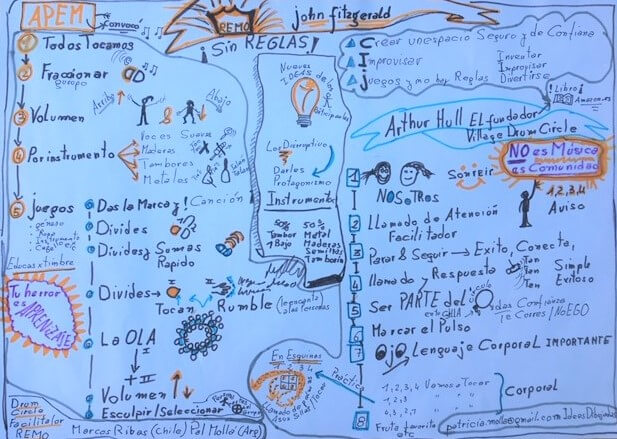 APEM
Convocó
REMO
john fitzgerald
¡Sin REGLAS!
1 Todos Tocamos
2 Fraccionar
3 Volumen
Arriba
Abajo
4 Por instrumento
Voces Suave
Maderas
Tambores
Metales
5 juegos
genero
Ropa
Instrumento
Das la Marca y! Canción
Divides
Divides y Sumas
Rapido
Educas x timbre
Divides
Tocan Rumble
Tu error
es
APRENDIZAJE
La OLA
I
+ II
Volumen
Esculpir/Seleccionar
Drum
Circle
Facilitator
REMO
Marcos Ribas (Chile) Pal Mollá (Arg)
Nuevas
IDEAS de los
Participantes
Los Disruptivo
Darles
Protagonismo
Instrumentos
50%
Tambor
1 Bajo
50%
Metal
Maderas
Semillas
Tamborin
Crear un espacio Seguro y de Confianza
Improvisar
Juegos y no hay Reglas
Inventar
Improvisar
Divertirse
! Libro!
Amazon.es
Arthur Hull El fundador
Village Drum Circle
NO es Música
es Comunidad
1 NOSOTROS
Sonreir
1,2,3,4
Aviso
2 Llamado de Atención
Facilitador
3 Parar & Seguir → Exito, Conecta,
4 llamado y Respuesta
Tan
Tan
Tan
Simple
Exitoso
5 Ser PARTE del
das Confianza
NO EGO
6 Marcar el Pulso
7 Lenguaje Corporal IMPORTANTE
En Esquinas
3 4
Práctica
1,2,3,4 Vamos a Tocar
1,2,3,4 "
4,3,2,1 "
Corporal
8 Fruta favorita
etc
patriciamolla@gmail.com